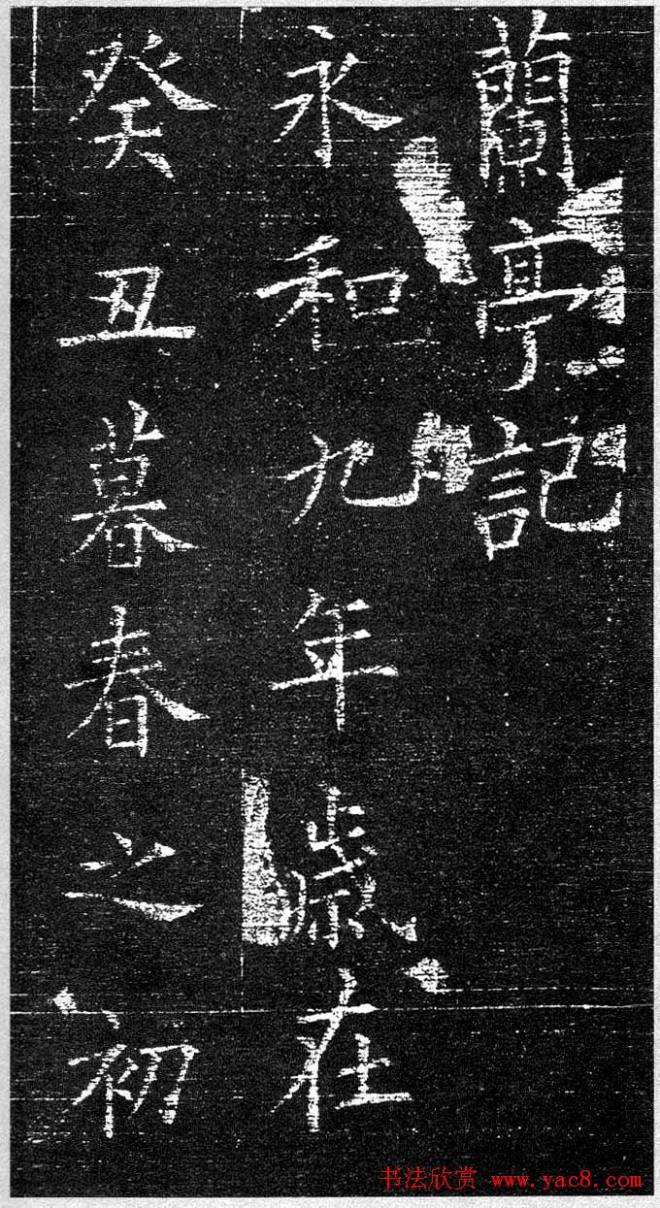 蘭亭記
永和九年歲在
癸丑暮春之初
书法欣赏 www.yac8.com